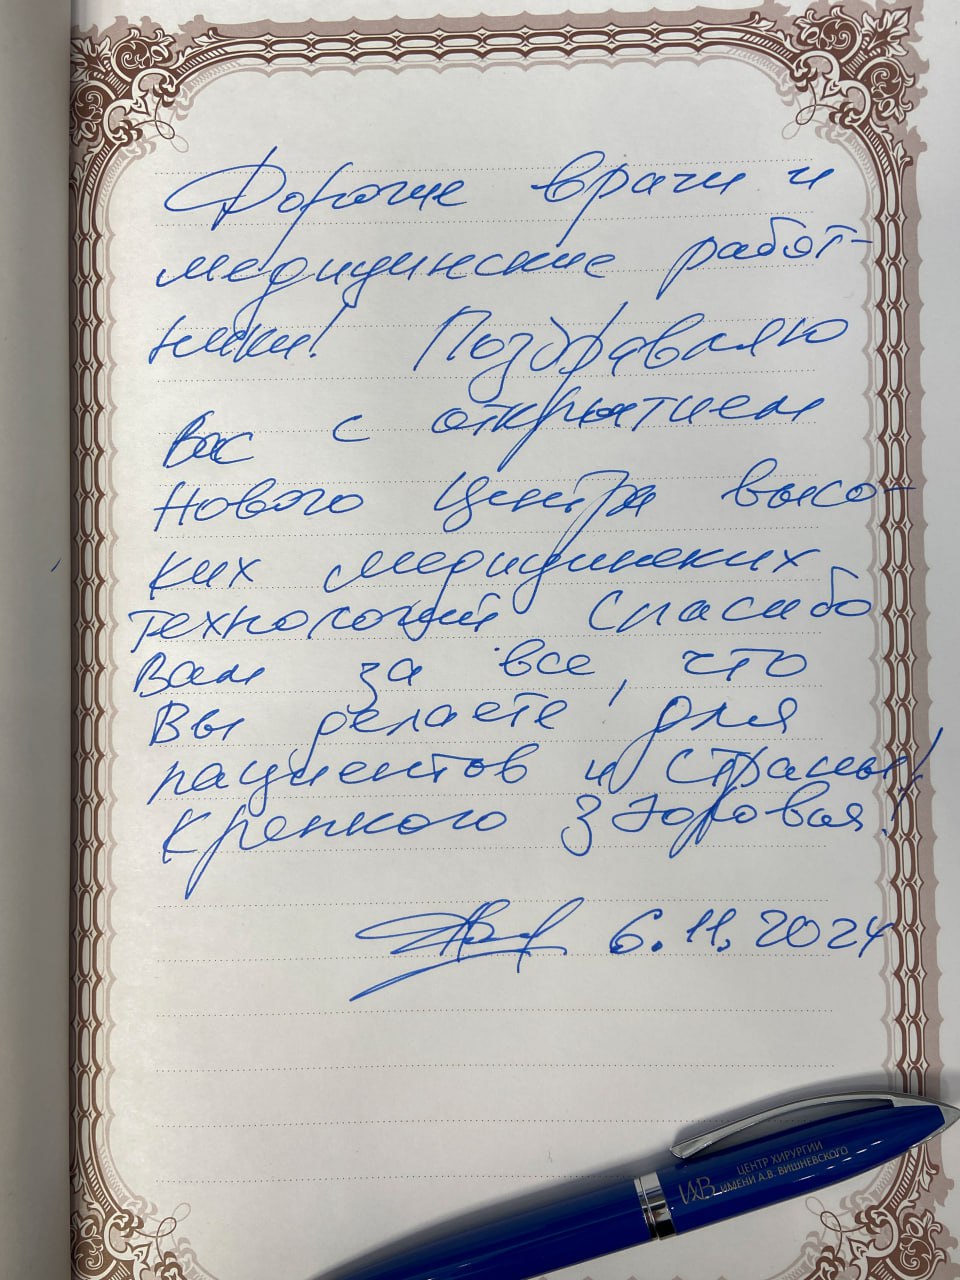 Дорогие врачи и
медицинские работ-
ники! Поздравляю
Вас с открытием
нового Центра высо-
ких медицинских
технологий Спасибо
Вам за все, что
Вы делаете для
пациентов и страны!
Крепкого здоровья!
6.11.2024
ЦЕНТР ХИРУРГИИ
ИМЕНИ А.В. ВИШНЕВСКОГО